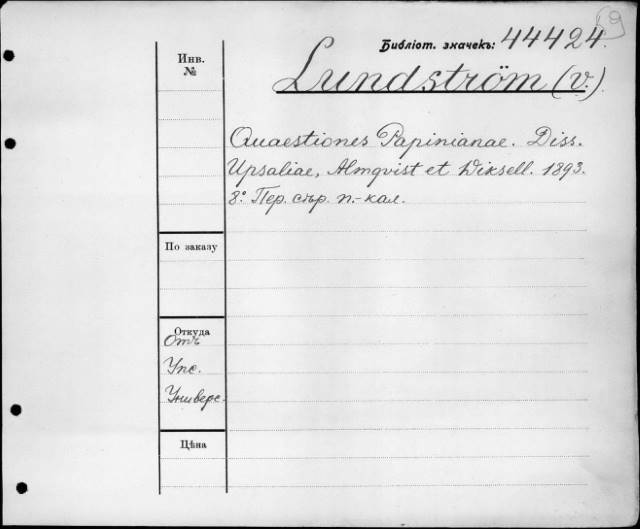 9
Библіот. значекъ: 44424.
Инв.
№
Lundström (V.)
Quaestiones Papinianae. Diss.
Upsaliae, Almqvist et Wiksell. 1893.
8º Пер. стр. п.-кал.
По заказу
Откуда
Отъ
Упс.
Универс.
Цѣна